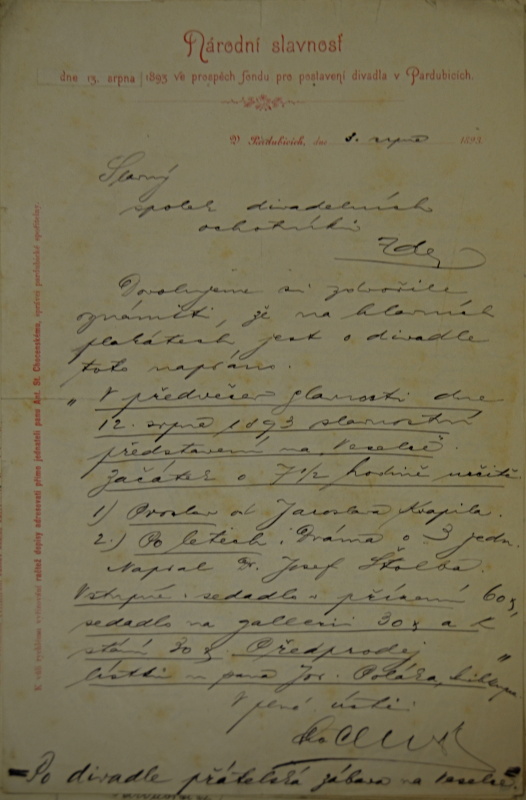 Národní slavnosť
dne 13. srpna 1893 ve prospěch fondu pro postavení divadla v Pardubicích.
V Pardubicích, dne 3. srpna 1893.
Slavný
spolek divadelních
ochotníků
Zde
Dovolujeme si zdvořile
oznámiti, že na hlavních
plakátech jest o divadle
toto napsáno.
„V předvečer slavnosti dne
12. srpna 1893 slavnostní
představení na Veselce.
Začátek o 7 1/2 hodině večer
1) Proslov od Jaroslava Kvapila.
2.) Po letech. Dráma o 3 jedn.
Napsal Dr. Josef Štolba.
Vstupné: sedadlo v přízemí 60
sedadlo na gallerii 30 a k
stání 30 Předprodej
lístků u pana Jos. Poláka,
V plné úctě:
Po divadle přátelská zábava na Veselce.
K vůli rychlému vyřizování račtež dopisy adresovati přímo jednateli panu Ant. St. Choceňskému, správci pardubické spořitelny.